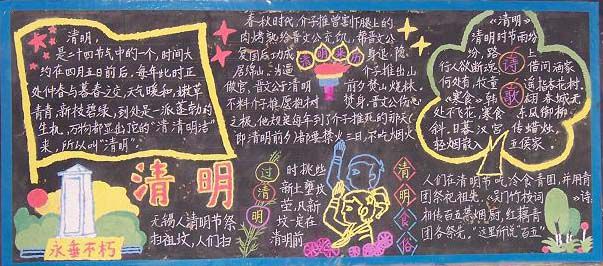 清明,
是二十四节气中的一个,时间大
约在四月五日前后,每年此时正
处仲春与暮春之交,天气暖和,嫩草
青青,新枝碧绿,到处是一派蓬勃的
生机,万物都显出花的“清清明洁”
来,所以叫“清明”.
春秋时代,介子推曾割下腿上的
肉烤熟给晋文公充饥,帮晋文公
复国后功成
身退,隐
居绵山.为逼
介子推出山
做官,晋文公清明
前夕焚山烧林.
不料介子推愿抱树
焚身.晋文公伤心
之极,他规定每年到了介子推死的那天(
即清明前夕)都要禁火三日,不吃烟火
《清明》
清明时节雨纷
纷,路
上
行人欲断
借问酒家
何处有,牧童
遥指杏花村.
《寒食》韩
翃 春城无
处不飞花,寒食
东风御柳
斜.日暮汉宫
传蜡烛,
轻烟散入
五侯家.
诗
歌
永垂不朽
清明
无锡人清明节祭
扫祖坟,人们扫
过
清
明
时挑些
新土壅坟
茔,凡新
坟一定在
清明前
清
明
食
俗
人们在清明节吃冷食青团,并用青
团祭祀祖先.《吴门竹枝词》诗
相传百五禁烟厨,红藕青
团各祭先.”这里所说“百五”